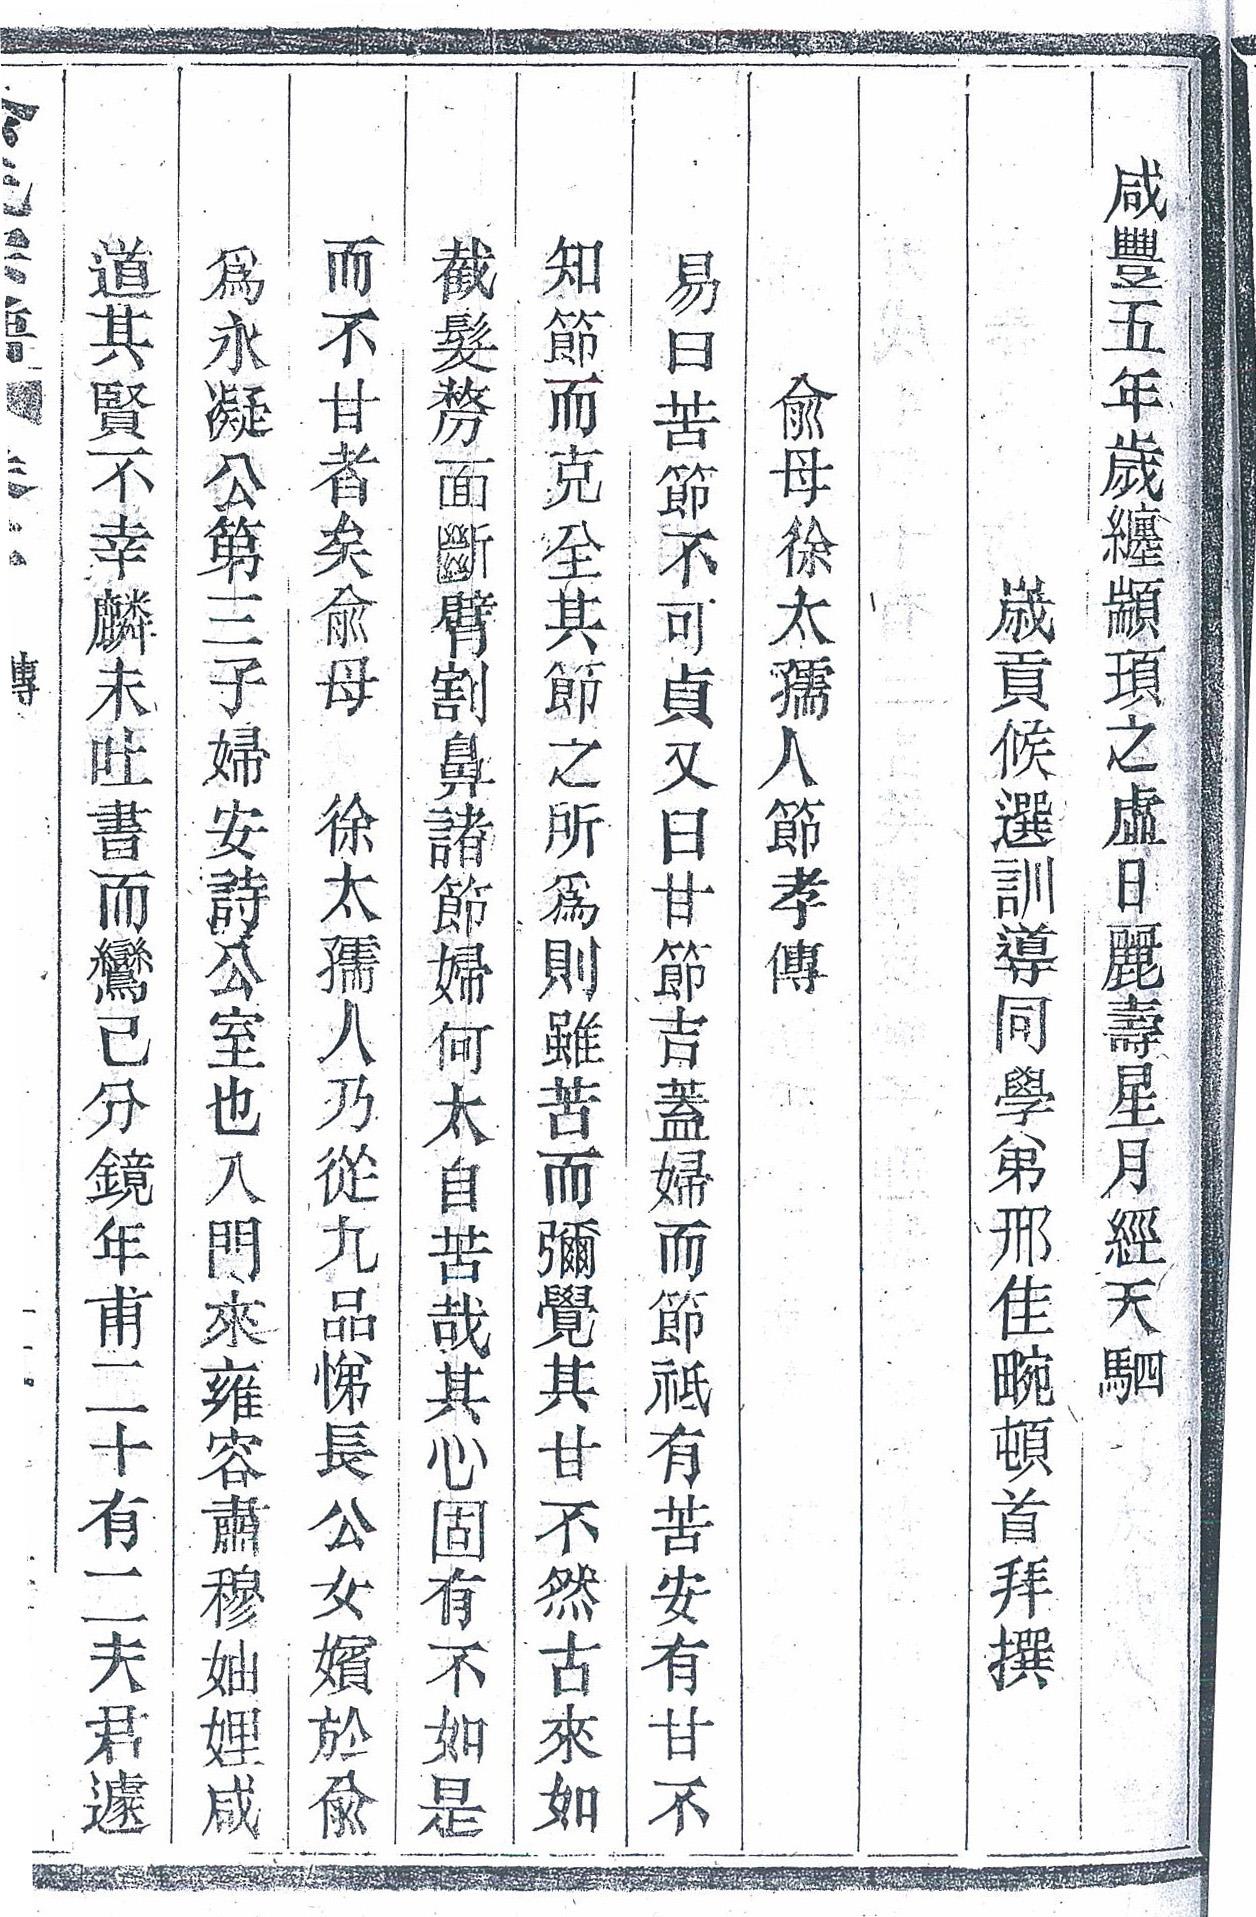 咸豐五年歲纏顓頊之虛日麗壽星月經天駟
歲貢候選訓導同學弟邢佳畹頓首拜撰
俞母徐太孺人節孝傳
易曰苦節不可貞又曰甘節吉蓋婦而節祗有苦安有甘不
知節而克全其節之所爲則雖苦而彌覺其甘不然古來如
截髮剺面斷臂割鼻諸節婦何太自苦哉其心固有不如是
而不甘者矣俞母　徐太孺人乃從九品悌長公女嬪於俞
爲永凝公第三子婦安詩公室也入門來雍容肅穆妯娌咸
道其賢不幸麟未吐書而鸞已分鏡年甫二十有二夫君遽
傳